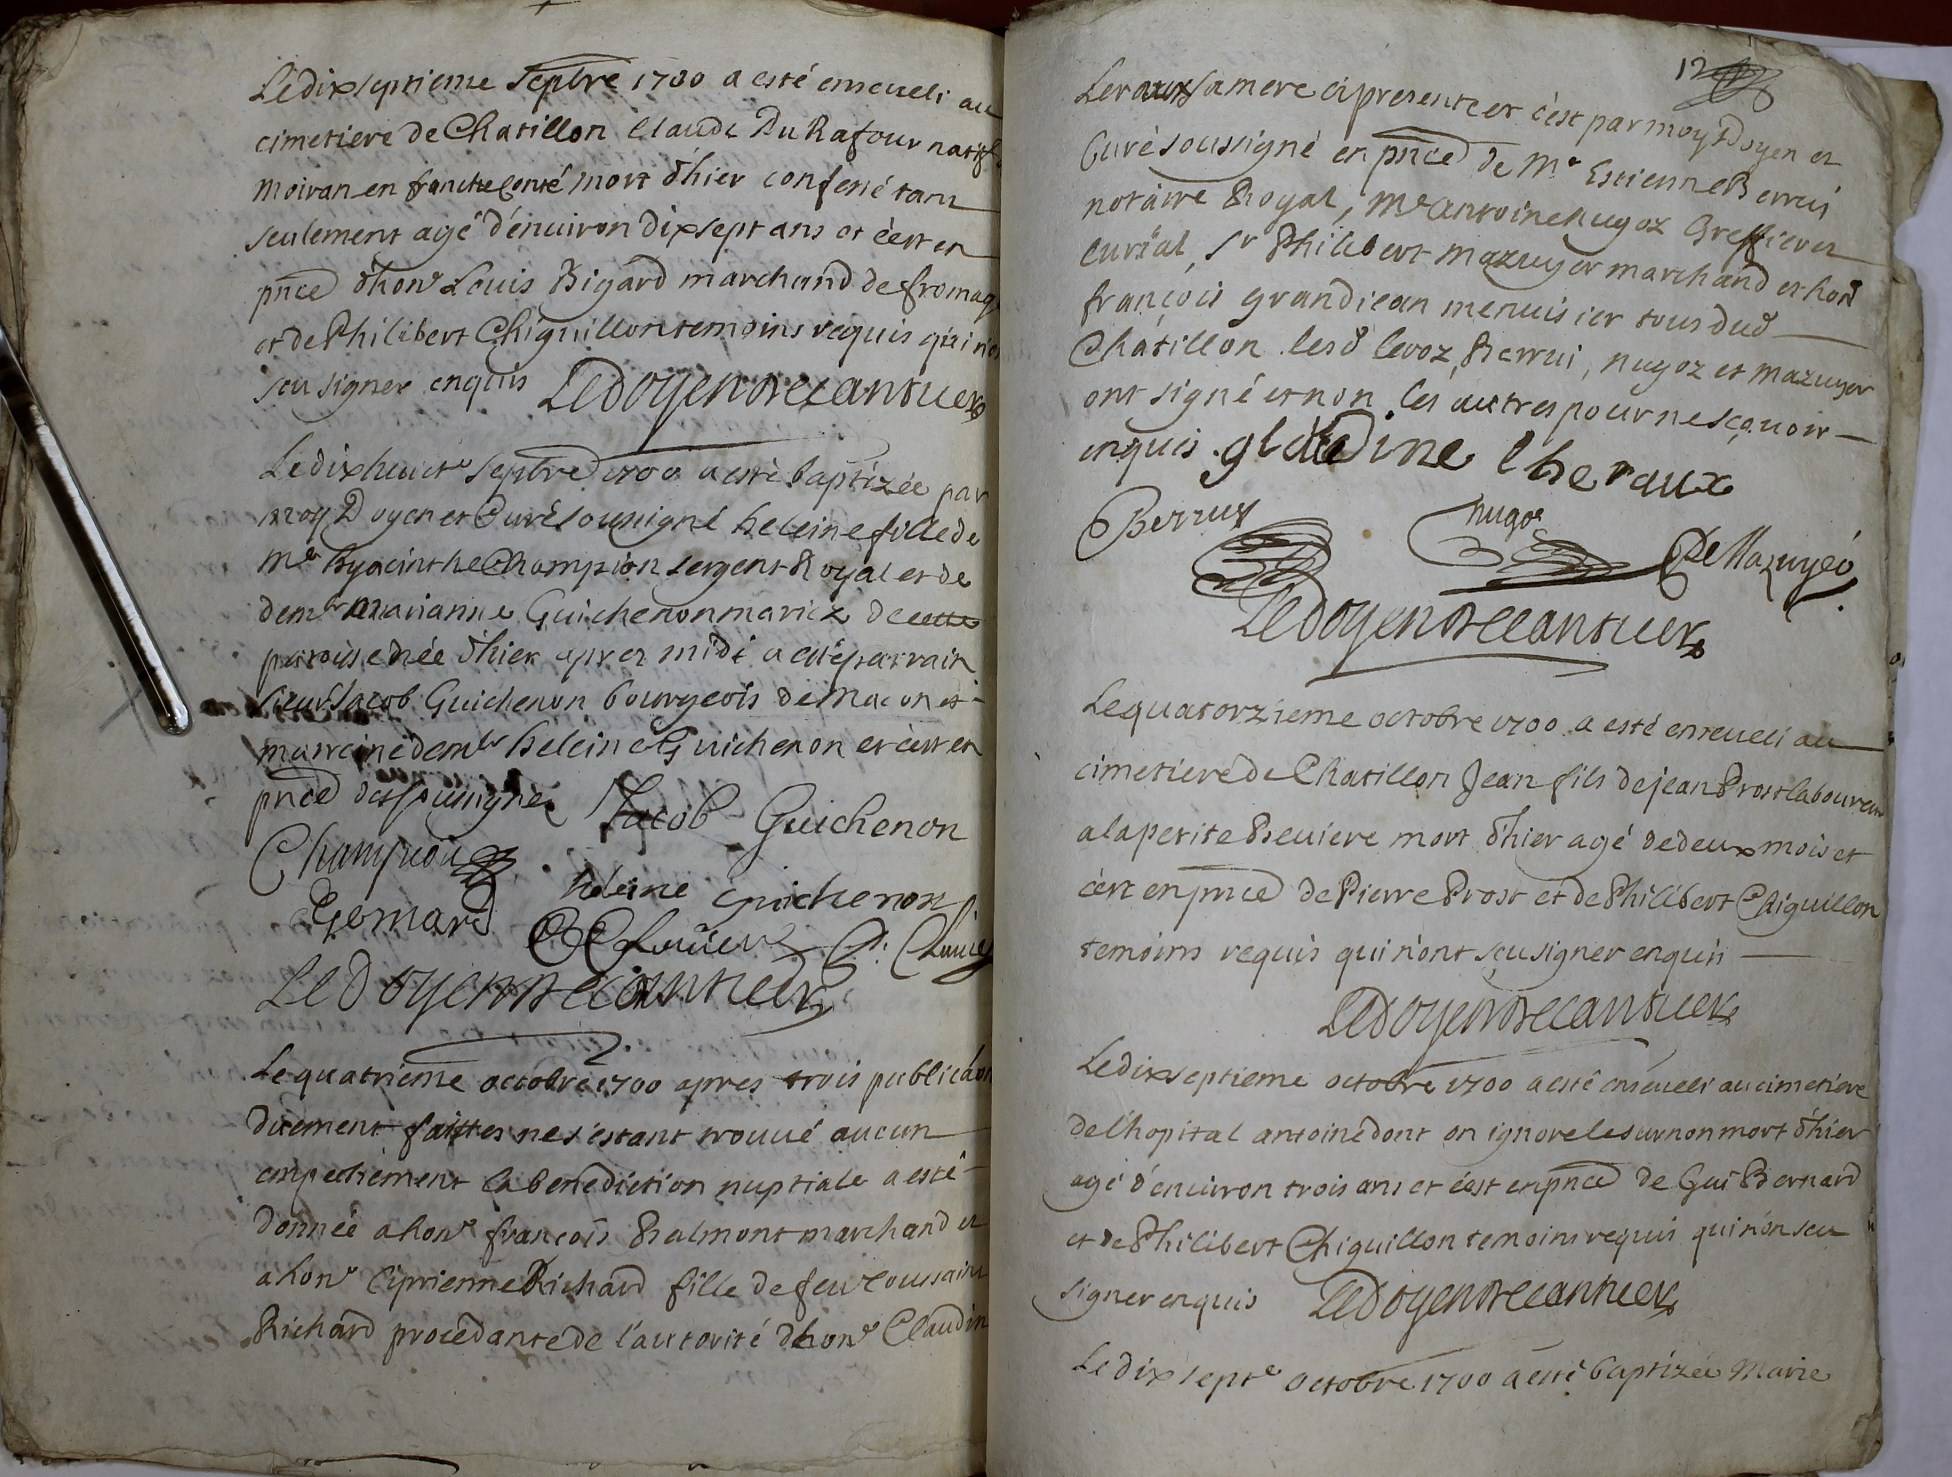 Le dix septieme septbre 1700 a esté enseueli au
cimetiere de Chatillon Claude Du Rafour natif
moiran en franche Conté mort d'hier confessé tant
seulement agé d'enuiron dix sept ans et c'est en
pnce d'hon^e Louis Bigard marchand de fromag
et de Philibert Chiguillon temoins requis qui n'
seu signer enquis Le Doyen Decantuer
Le dix huict^e septbre 1700 a esté baptizée par
moy Doyen et Curé soussigné heleine fille de
M^e hyacinthe Champion sergent Royal et de
dem^lle marianne Guichenon mariez de cette
paroisse née d'hier apres midi a esté parrain
sieur Jacob Guichenon bourgeois de Macon et
marreine dem^lle heleine Guichenon et c'est en
pnce des soussignés Jacob Guichenon
Champion
heleine guichenon
Gemard
Le Doyen Decantuer
Le quatrieme octobre 1700 apres trois publicaon
duement faittes ne s'estant trouué aucun
empechement la benediction nuptiale a esté
donnée a hon^e françois Balmont marchand et
a hon^e Ciprienne Richard fille de feu toussain
Richard procedante de l'autorité d'hon^e Claudin
12
Leraux sa mere ci presente et c'est par moy Doyen et
Curé soussigné en pnce de M^e Estienne Berrui
notaire Royal, M^e antoine nugoz Greffier et
curial, s^r Philibert mazuyer marchand et hon^e
françois grandjean menuisier tous dud
Chatillon lesd leroz, Berrui, nugoz et mazuyer
ont signé et non les autres pour ne sçauoir
enquis glodine lheraux
Berruy
nugoz
De Mazuyer
Le Doyen Decantuer
Le quatorzieme octobre 1700 a esté enseueli au
cimetiere de Chatillon Jean fils de jean Prost laboureur
a la petite Beuiere mort d'hier agé de deux mois et
c'est en pnce de Pierre Prost et de Philibert Chiguillon
temoins requis qui n'ont sçu signer enquis
Le Doyen Decantuer
Le dix septieme octobre 1700 a esté enseueli au cimetiere
de l'hopital antoine dont on ignore le surnon mort d'hier
agé d'enuiron trois ans et c'est en pnce de Gui Bernard
et de Philibert Chiguillon temoins requis qui n'on seu
signer enquis Le Doyen Decantuer
Le dix sept^e octobre 1700 a esté baptizée Marie